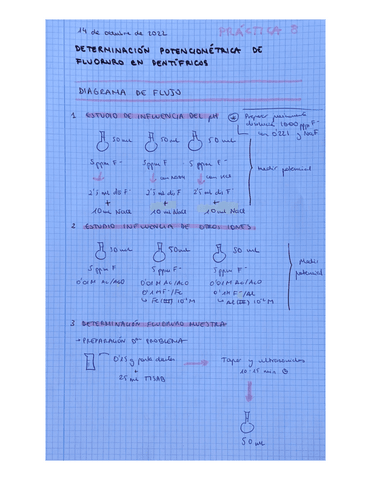 14 de octubre de 2022
PRÁCTICA 8
DETERMINACIÓN POTENCIOMÉTRICA DE
FLUORURO EN DENTÍFRICOS
DIAGRAMA DE FLUJO
1 ESTUDIO DE INFLUENCIA DEL pH
Preparar
disolución 1000 ppm F⁻
con 0'221 g NaF
50 ml 50 ml 50 ml
5 ppm F⁻ 5 ppm F⁻ 5 ppm F⁻
con con HCl
medir potencial
2'5 ml de F⁻ 2'5 ml de F⁻ 2'5 ml de F⁻
+ + +
10 ml NaCl 10 ml NaCl 10 ml NaCl
2 ESTUDIO INFLUENCIA DE OTROS IONES
50 ml 50 ml
5 ppm F⁻ 5 ppm F⁻ 5 ppm F⁻
Medir
potencial
0'01 M 0'01 M 0'01 M
↳ Fe(III) 10⁻² M ↳ Al(III) 10⁻² M
3 DETERMINACIÓN FLUORURO MUESTRA
→ PREPARACIÓN PROBLEMA
0'15 g pasta dientes
+
25 ml TISAB
Tapar y ultrasonidos
10-15 min
50 ml